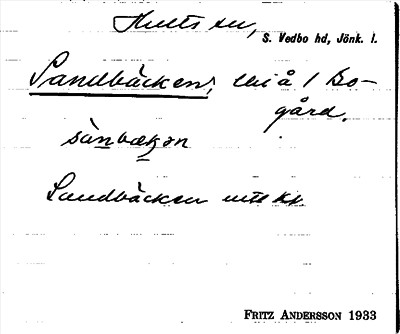 Hults sn,
S. Vedbo hd, Jönk. l.
Sandbäcken, liå / Bo-
gård.
sànbækən
Sandbäcken
FRITZ ANDERSSON 1933